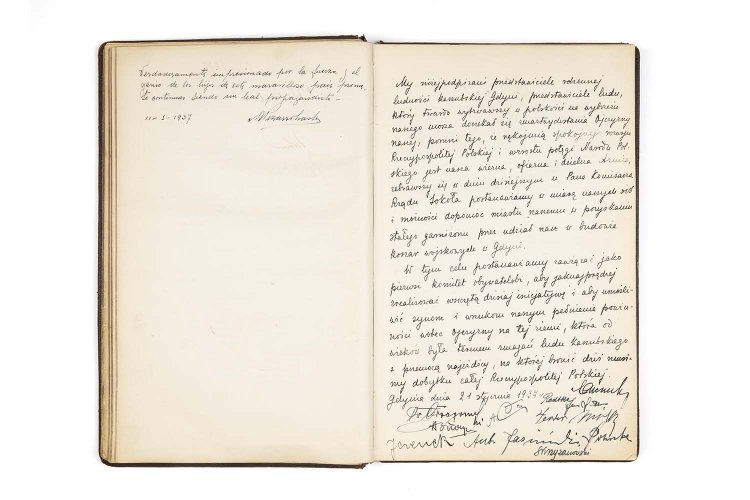 Verdaderamente impresionado por la fuerza y el
genio de los hijos de este maravilloso pais prome
to continuar siendo un leal propagandista -
11-3-1937
My niżej podpisani przedstawiciele rdzennej
ludności kaszubskiej Gdyni, przedstawiciele ludu,
który twardo wytrwawszy w polskości na wybrzeżu
naszego morza doczekał się zmartwychwstania Ojczyzny
naszej, pomni tego, że rękojmią spokojnego rozwoju
Rzeczypospolitej Polskiej i wzrostu potęgi Narodu Pol-
skiego jest nasza wierna, ofiarna i dzielna Armia,
zebrawszy się w dniu dzisiejszym u Pana Komisarza
Rządu Sokoła postanawiamy w miarę naszych sił
i możności dopomóc miastu naszemu w pozyskaniu
stałego garnizonu przez udział nasz w budowie
koszar wojskowych w Gdyni.
W tym celu postanawiamy zawiązać jako
pierwsi komitet obywatelski, aby jaknajprędzej
zrealizować wszczętą dzisiaj inicjatywę i aby umożli-
wić synom i wnukom naszym pełnienie powin-
ności wobec Ojczyzny na tej ziemi, która od
wieków była terenem zmagań ludu kaszubskiego
z przemocą najeźdźcy, na której bronić dziś musi-
my dobytku całej Rzeczypospolitej Polskiej.
Gdynia dnia 21 stycznia 1937
Skrzyszewski